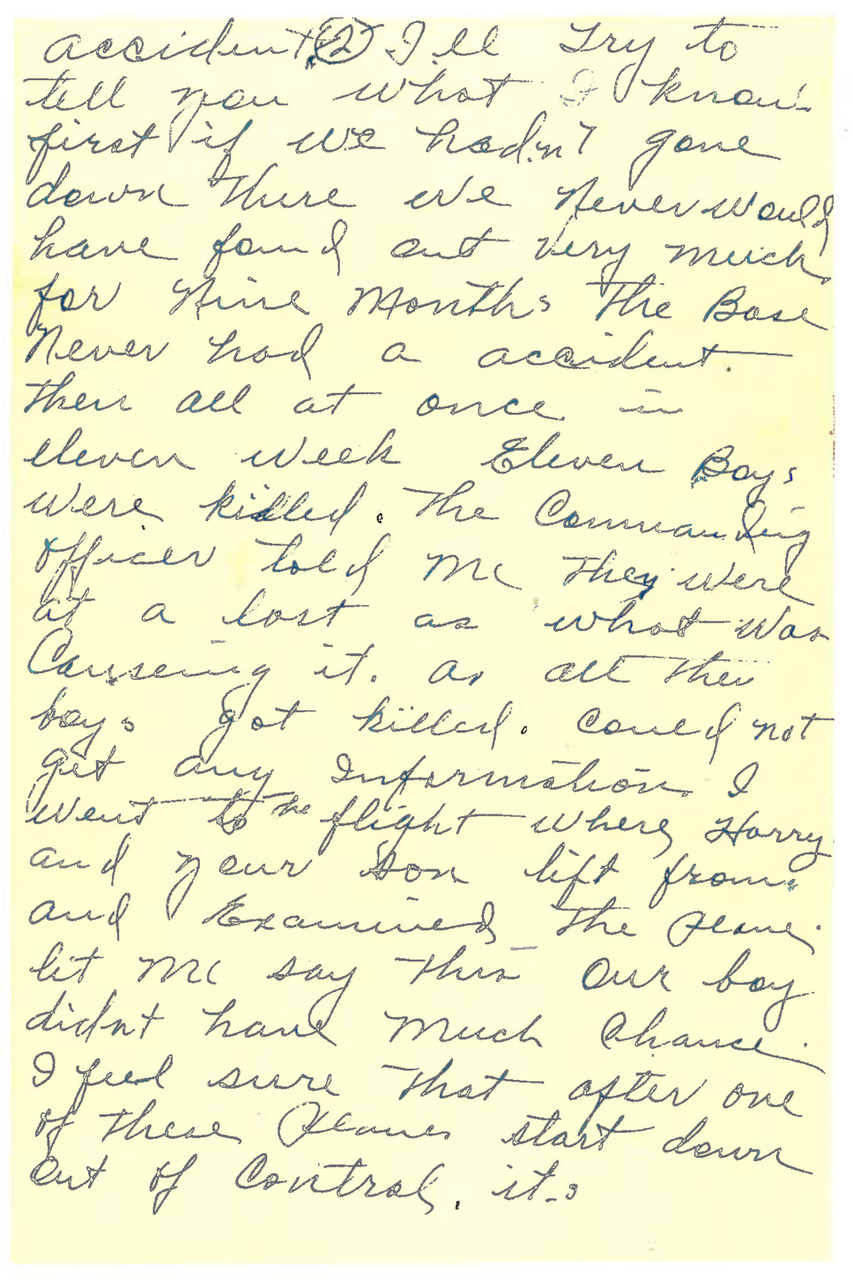 accident. (2) I.ll Try to
tell you what I know.
first if we hadn't gone
down there we Never would
have found out very much.
for Nine Months The Base
Never had a accident.
then all at once in
eleven week Eleven Boys
were killed. The Commanding
officer told Me they were
at a lost as what was
Causeing it. as all the
boys got killed. Could not
get any Information. I
went to the flight where Harry
and your son lift from.
and Examined The plane.
let Me say this our boy
didnt have Much Chance.
I feel sure that after one
of these planes start down
out of Control. it.s